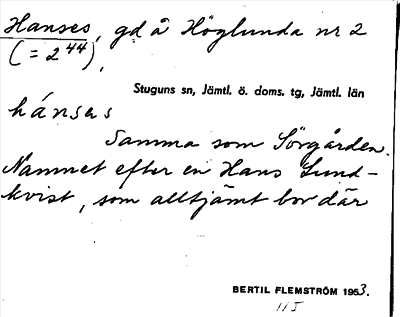 Hanses, gd å Höglunda nr 2
(= 2⁴⁴),
Stuguns sn, Jämtl. ö. doms. tg, Jämtl. län
hánses
Samma som Sörgården.
Namnet efter en Hans Lund-
kvist, som alltjämt bor där
BERTIL FLEMSTRÖM 1953.